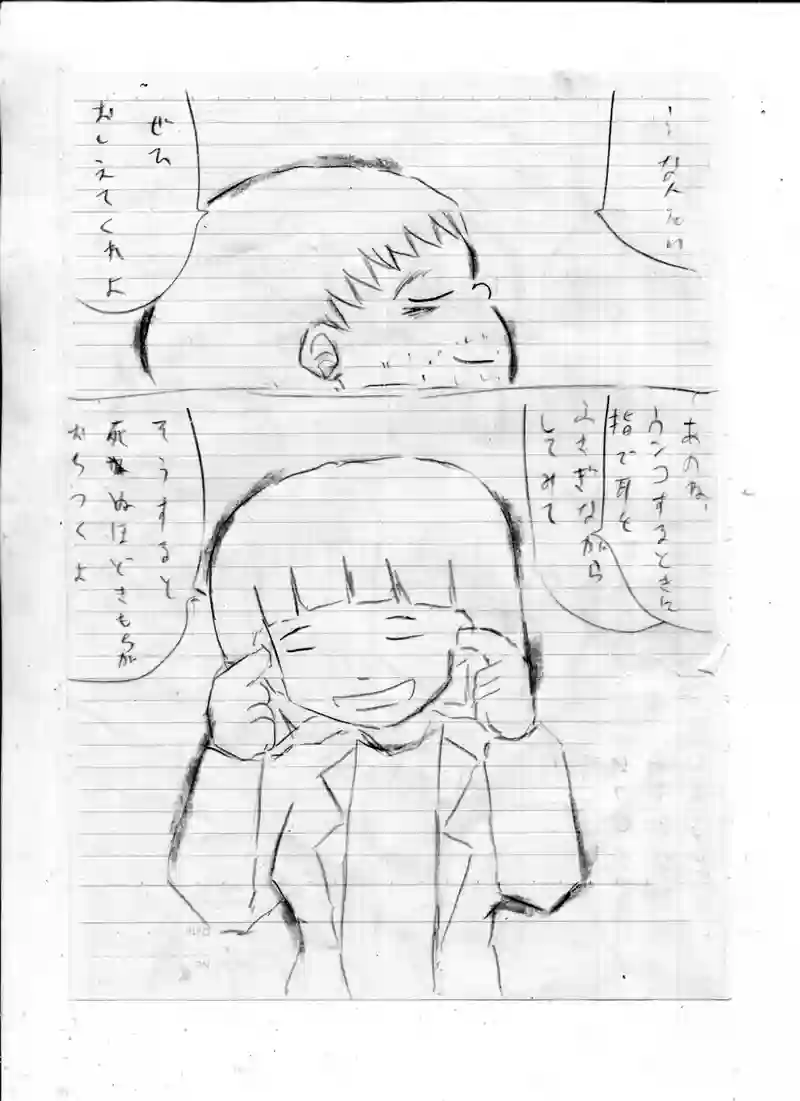 …なんだい
ぜひ
おしえてくれよ
あのね、
ウンコするときに
指で耳を
ふさぎながら
してみて
そうすると
死ぬほどきもちが
おちつくよ